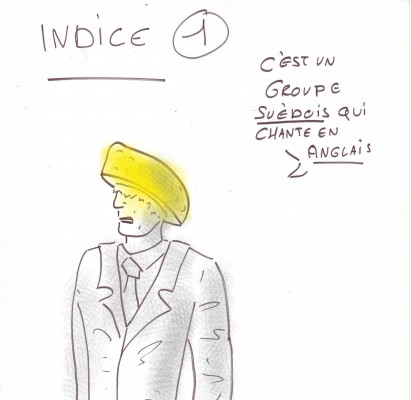 INDICE 1
C'EST UN
GROUPE
SUÈDOIS QUI
CHANTE EN
ANGLAIS